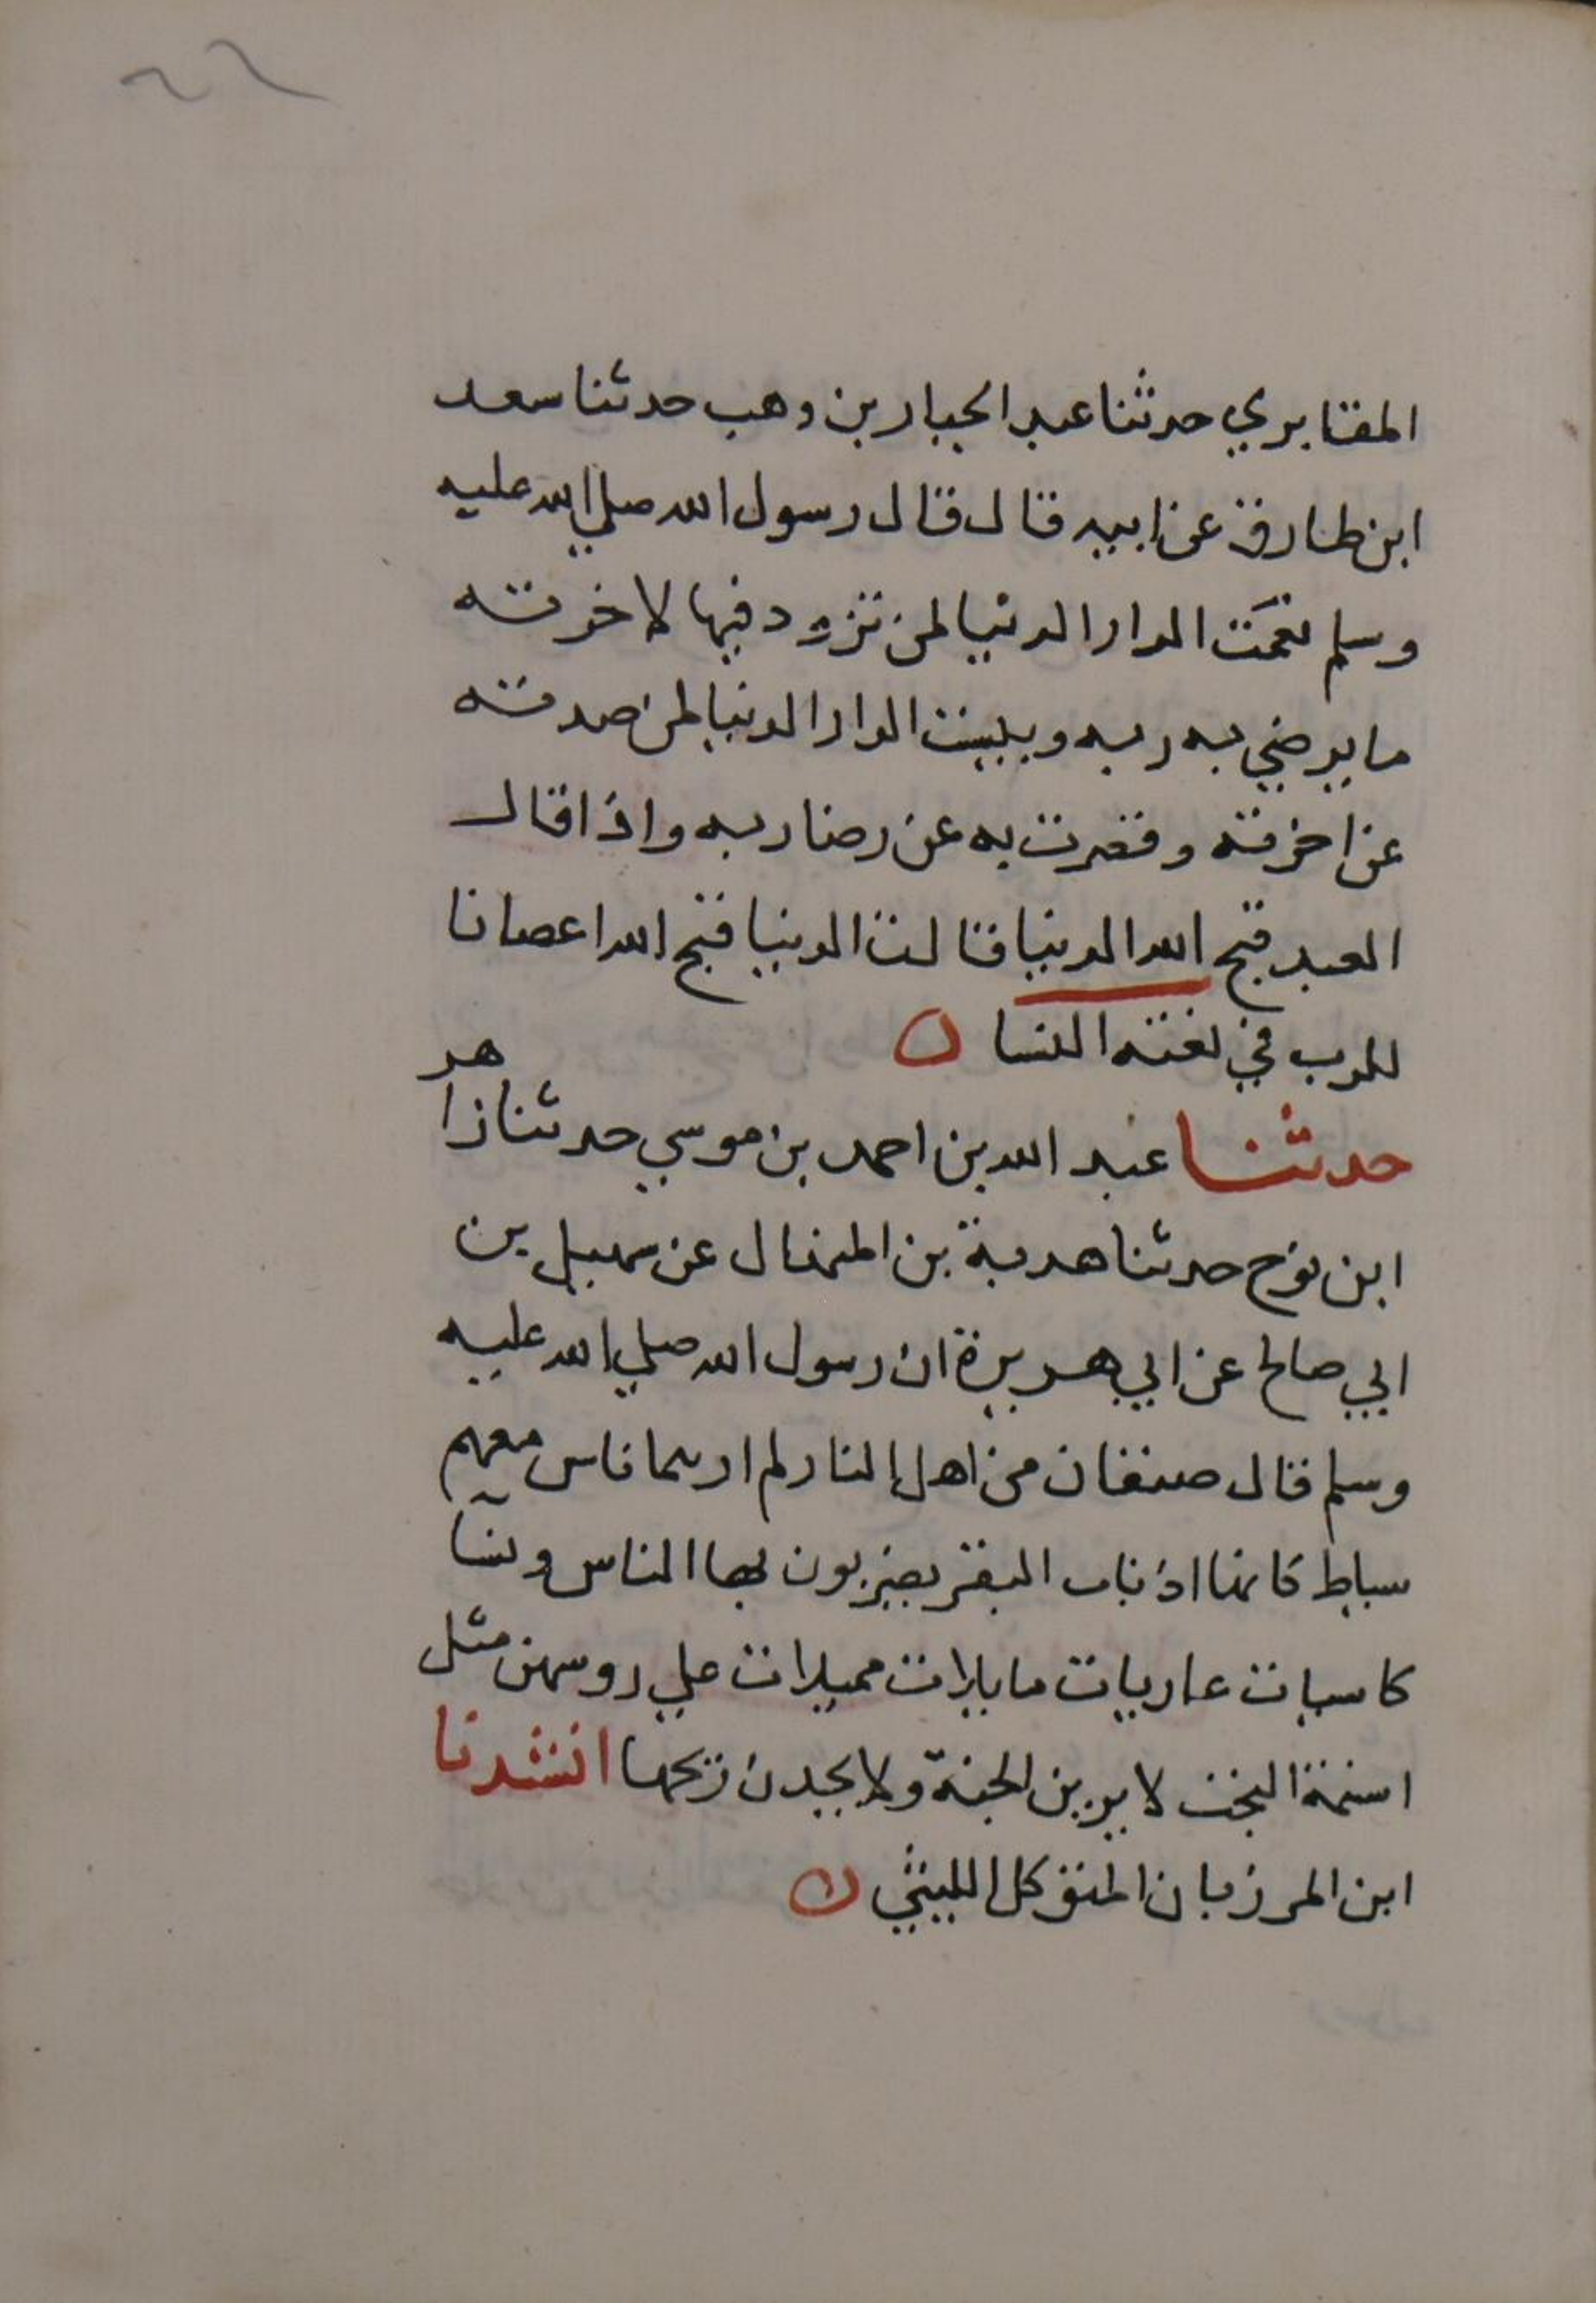 ٢٦
المقابري حدثنا عبد الجبار بن وهب حدثنا سعد
ابن طارق عن ابيه قال قال رسول الله صلي الله عليه
وسلم نعمَت الدار الدنيا لمن تزود فيها لاخرته
ما يرضي به ربه وبيست الدار الدنيا لمن صدته
عن اخرته وقصرت به عن رضا ربه واذا قال
العبد قبح الله الدنيا قالت الدنيا قبح الله اعصانا
للرب في لغته النسا ن
حدثنا عبد الله بن احمد بن موسي حدثنا زاهر
ابن نوح حدثنا هدبة بن المنهال عن سهيل بن
ابي صالح عن ابي هريرة ان رسول الله صلي الله عليه
وسلم قال صنفان من اهل النار لم ارهما ناس معهم
سياط كانها اذناب البقر يضربون بها الناس ونسآ
كاسيات عاريات مايلات مميلات علي روسهن مثل
اسنمة البخت لا يرين الجنة ولا يجدن ريحها انشدنا
ابن المرزبان المتوكل الليثي ن